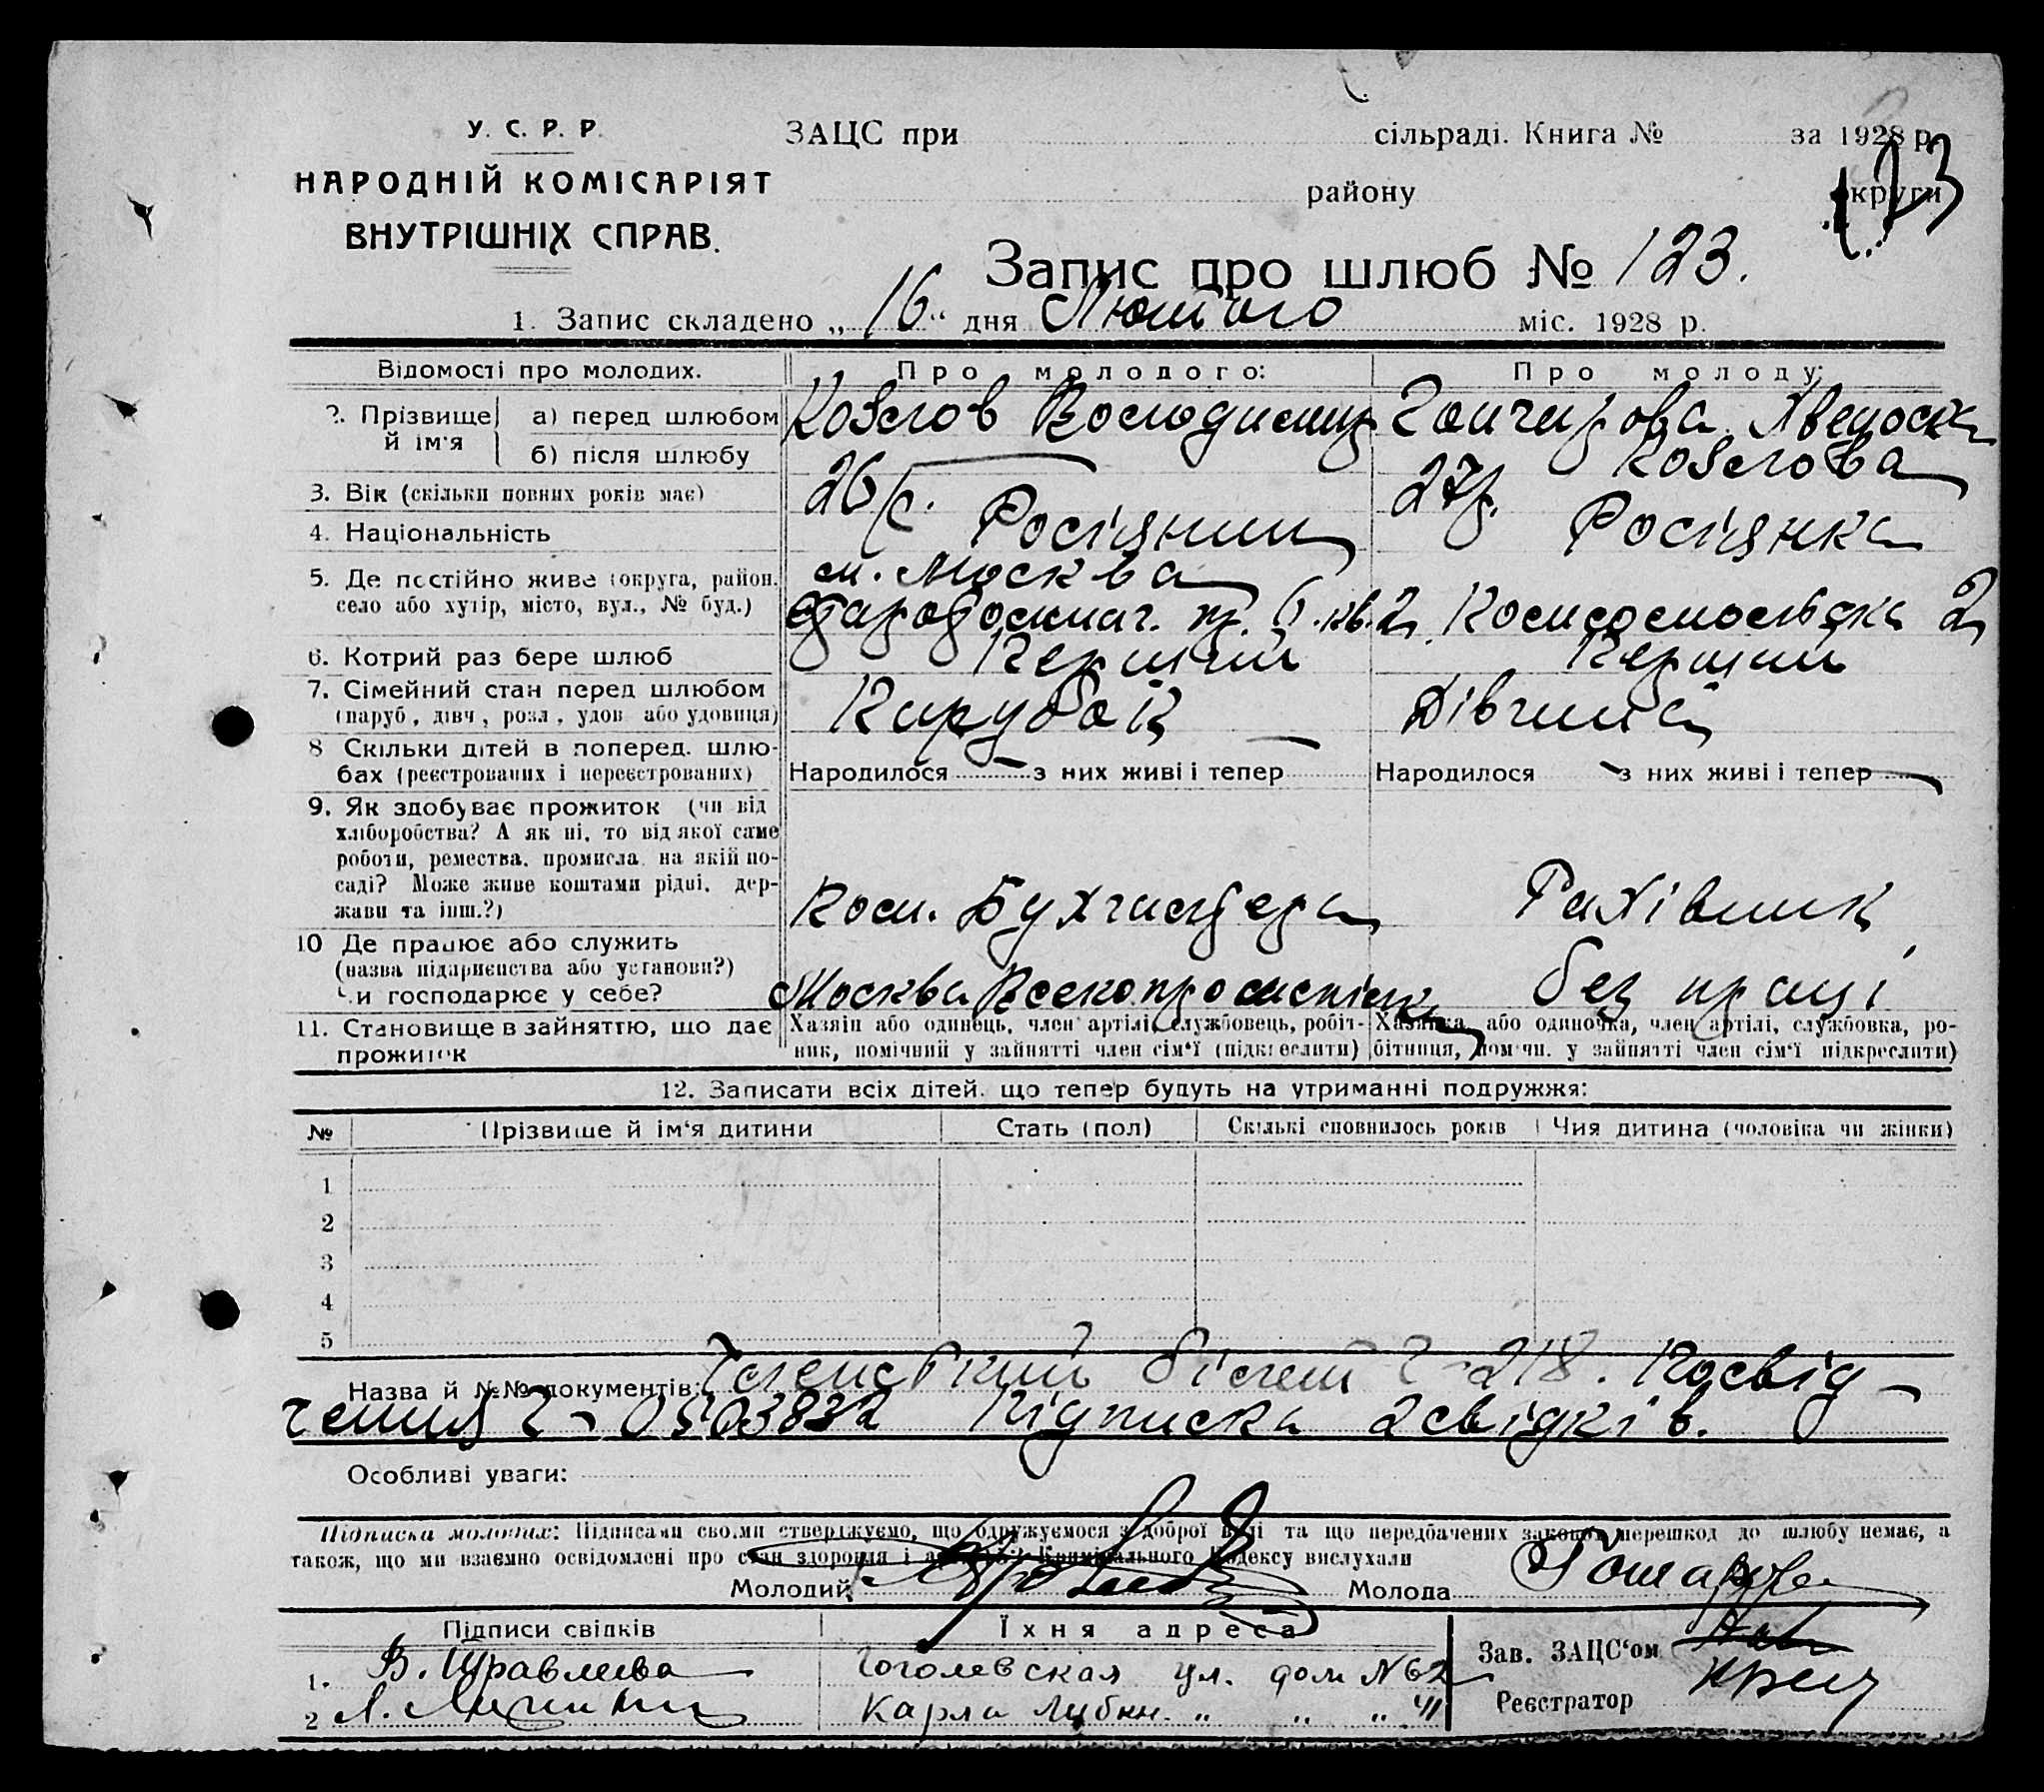 У. С. Р. Р.
НАРОДНІЙ КОМІСАРІЯТ
ВНУТРІШНІХ СПРАВ.
ЗАЦС при сільраді. Книга № за 1928 р.
району округи
123
Запис про шлюб № 123.
1. Запис складено „16“ дня Лютого міс. 1928 р.
Відомості про молодих. Про молодого: Про молоду:
2. Прізвище й ім'я а) перед шлюбом Козлов Володимир Гончарова
б) після шлюбу — Козлова
3. Вік (скільки повних років має) 26 р. 27 р.
4. Національність Росіянин Росіянка
5. Де постійно живе (округа, район, село або хутір, місто, вул., № буд.) м. Москва
кв. 2 Комсомольська 2
6. Котрий раз бере шлюб Перший Перший
7. Сімейний стан перед шлюбом (паруб., дівч., розл., удов. або удовиця) Парубок Дівчина
8 Скільки дітей в поперед. шлюбах (реєстрованих і нереєстрованих) Народилося — з них живі і тепер — Народилося — з них живі і тепер —
9. Як здобуває прожиток (чи від хліборобства? А як ні, то від якої саме роботи, ремества, промисла, на якій посаді? Може живе коштами рідні, держави та інш.?) Пом. Бухгалтера Рахівник
10 Де працює або служить (назва підприємства або установи?) Чи господарює у себе? Москва без праці
11. Становище в зайняттю, що дає прожиток Хазяін або одинець, член артілі, службовець, робітник, помічний у зайнятті член сім'ї (підкреслити) Хазяйка або одиночка, член артілі, службовка, робітниця, помічн. у зайнятті член сім'ї підкреслити)
12. Записати всіх дітей, що тепер будуть на утриманні подружжя:
№ Прізвище й ім'я дитини Стать (пол) Скількі сповнилось років Чия дитина (чоловіка чи жінки)
1
2
3
4
5
Назва й №№ документів: Членський білет № 218. Посвід-
чення № 0503832 Підписка 2 свідків.
Особливі уваги:
Підписка молодих: Підписами своїми стверджуємо, що одружуємося з доброї волі та що передбачених законом перешкод до шлюбу немає, а
також, що ми взаємно освідомлені про стан здоровля і Кримінального Кодексу вислухали
Молодий Молода Гончарова
Підписи свідків Їхня адреса Зав. ЗАЦС'ом
1. В. Журавлева Гоголевская ул. дом № 62
Реєстратор
2 Л. Карла Либкн. „ „ „